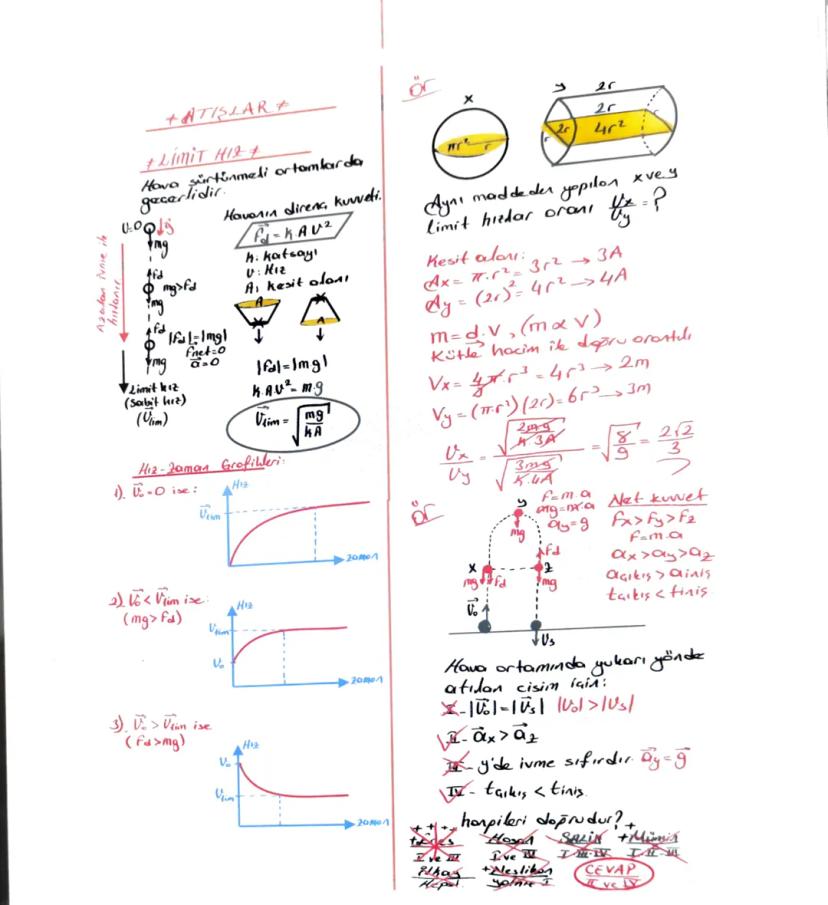 +ATIŞLAR+
+LİMİT HIZ+
Hava sürtünmeli ortamlarda
geçerlidir.
Havanın direnç kuvveti.
Fd = k A V²
k: Katsayı
V: Hız
A: Kesit alanı
A
A
V=0
g
mg
fd
mg>fd
mg
fd
|Fd|=|mg|
Fnet=0
a=0
mg
Azalan ivme ile
hızlanır
Limit hız
(Sabit hız)
(Vlim)
|Fd|=|mg|
k.A.V²=m.g
Vlim = √mg/kA
Hız-Zaman Grafikleri:
1). V₀=0 ise:
Hız
Vlim
zaman
2). V₀ < Vlim ise:
(mg>fd)
Hız
Vlim
V₀
zaman
3). V₀ > Vlim ise
(Fd>mg)
Hız
V₀
Vlim
zaman
Ör
x
πr²
r
y
2r
2r
2r
4r²
r
Aynı maddeden yapılan x ve y
limit hızlar oranı Vx/Vy = ?
Kesit alanı:
Ax = π.r² = 3r² → 3A
Ay = (2r)² = 4r² → 4A
m = d.V, (m α V)
Kütle hacim ile doğru orantılı
Vx = 4/3 π.r³ = 4r³ → 2m
Vy = (π.r²)(2r) = 6r³ → 3m
Vx/Vy = √2mg/k.3A / √3mg/k.4A = √8/9 = 2√2/3
Ör
y
mg
F=m.a
mg=m.a
ay=g
x
mg
fd
fd
z
mg
V₀
Vs
Net kuvvet
Fx>Fy>Fz
F=m.a
ax>ay>az
açıkış>ainiş
tçıkış<tiniş
Hava ortamında yukarı yönde
atılan cisim için:
I- |V₀|=|Vs| |V₀|>|Vs|
II- ax>az
III- y'de ivme sıfırdır. ay=g
IV- tçıkış<tiniş.
hangileri doğrudur?
I ve III
Hasan
I ve IV
SALİH
I III IV
+Mümin
I II III
İlkay
Hepsi
+Neslihan
yalnız I
CEVAP
II ve IV